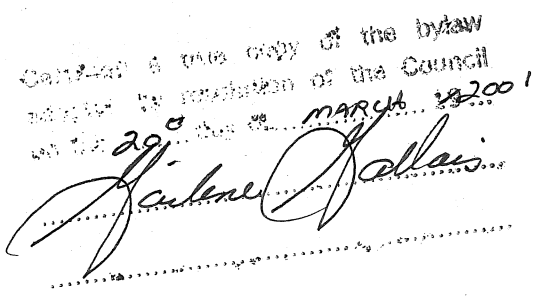 Certified a true copy of the bylaw
adopted by resolution of the Council
on the 20th day of MARCH 2001